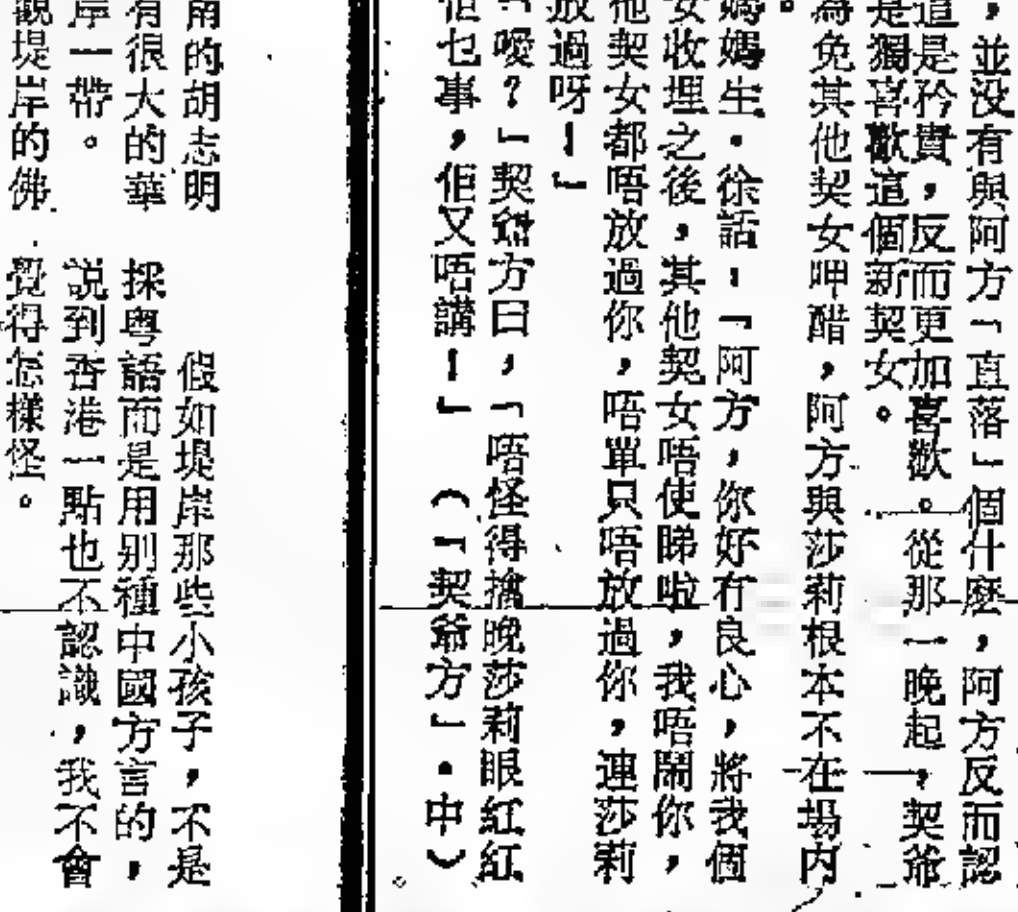 ，並没有與阿方「直落」個什麽，阿方反而認
這是矜貴，反而更加喜歡。從那一晚起，契爺
是獨喜歡這個新契女。
為免其他契女呷醋，阿方與莎莉根本不在場内
。
媽媽生・徐話：「阿方，你好冇良心，將我個
女收埋之後，其他契女唔使睇啦，我唔鬧你，
他契女都唔放過你，唔單只唔放過你，連莎莉
放過呀！」
「噯？」契爺方曰，「唔怪得擒晚莎莉眼紅紅
佢乜事，佢又唔講！」（「契爺方」・中）
南的胡志明
有很大的華
岸一帶。
觀堤岸的佛
假如堤岸那些小孩子，不是
採粤語而是用别種中國方言的，
説到香港一點也不認識，我不會
覺得怎樣怪。